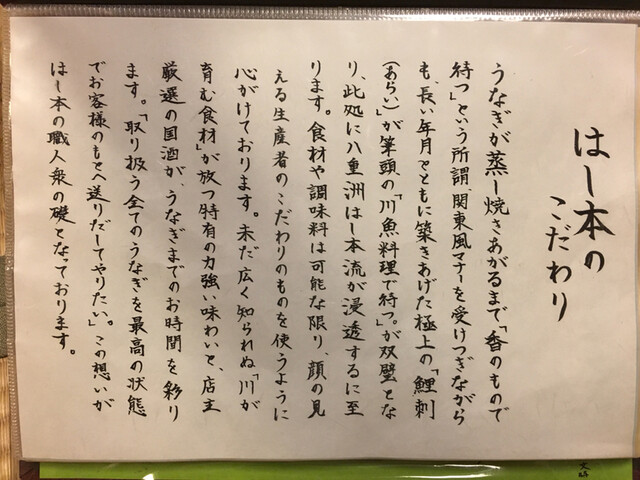 はし本の
こだわり
うなぎが蒸し焼きあがるまで「香のもので
待つ」という所謂関東風マナーを受けつぎながら
も、長い年月とともに築きあげた極上の「鯉刺
(あらい)」が筆頭の「川魚料理で待つ。」が双璧とな
り、此処に八重洲はし本流が浸透するに至
ります。食材や調味料は可能な限り、顔の見
える生産者のこだわりのものを使うように
心がけております。未だ広く知られぬ「川が
育む食材」が放つ特有の力強い味わいと、店主
厳選の国酒が、うなぎまでのお時間を彩り
ます。「取り扱う全てのうなぎを最高の状態
でお客様のもとへ送りだしてやりたい。」この想いが
はし本の職人衆の礎となっております。